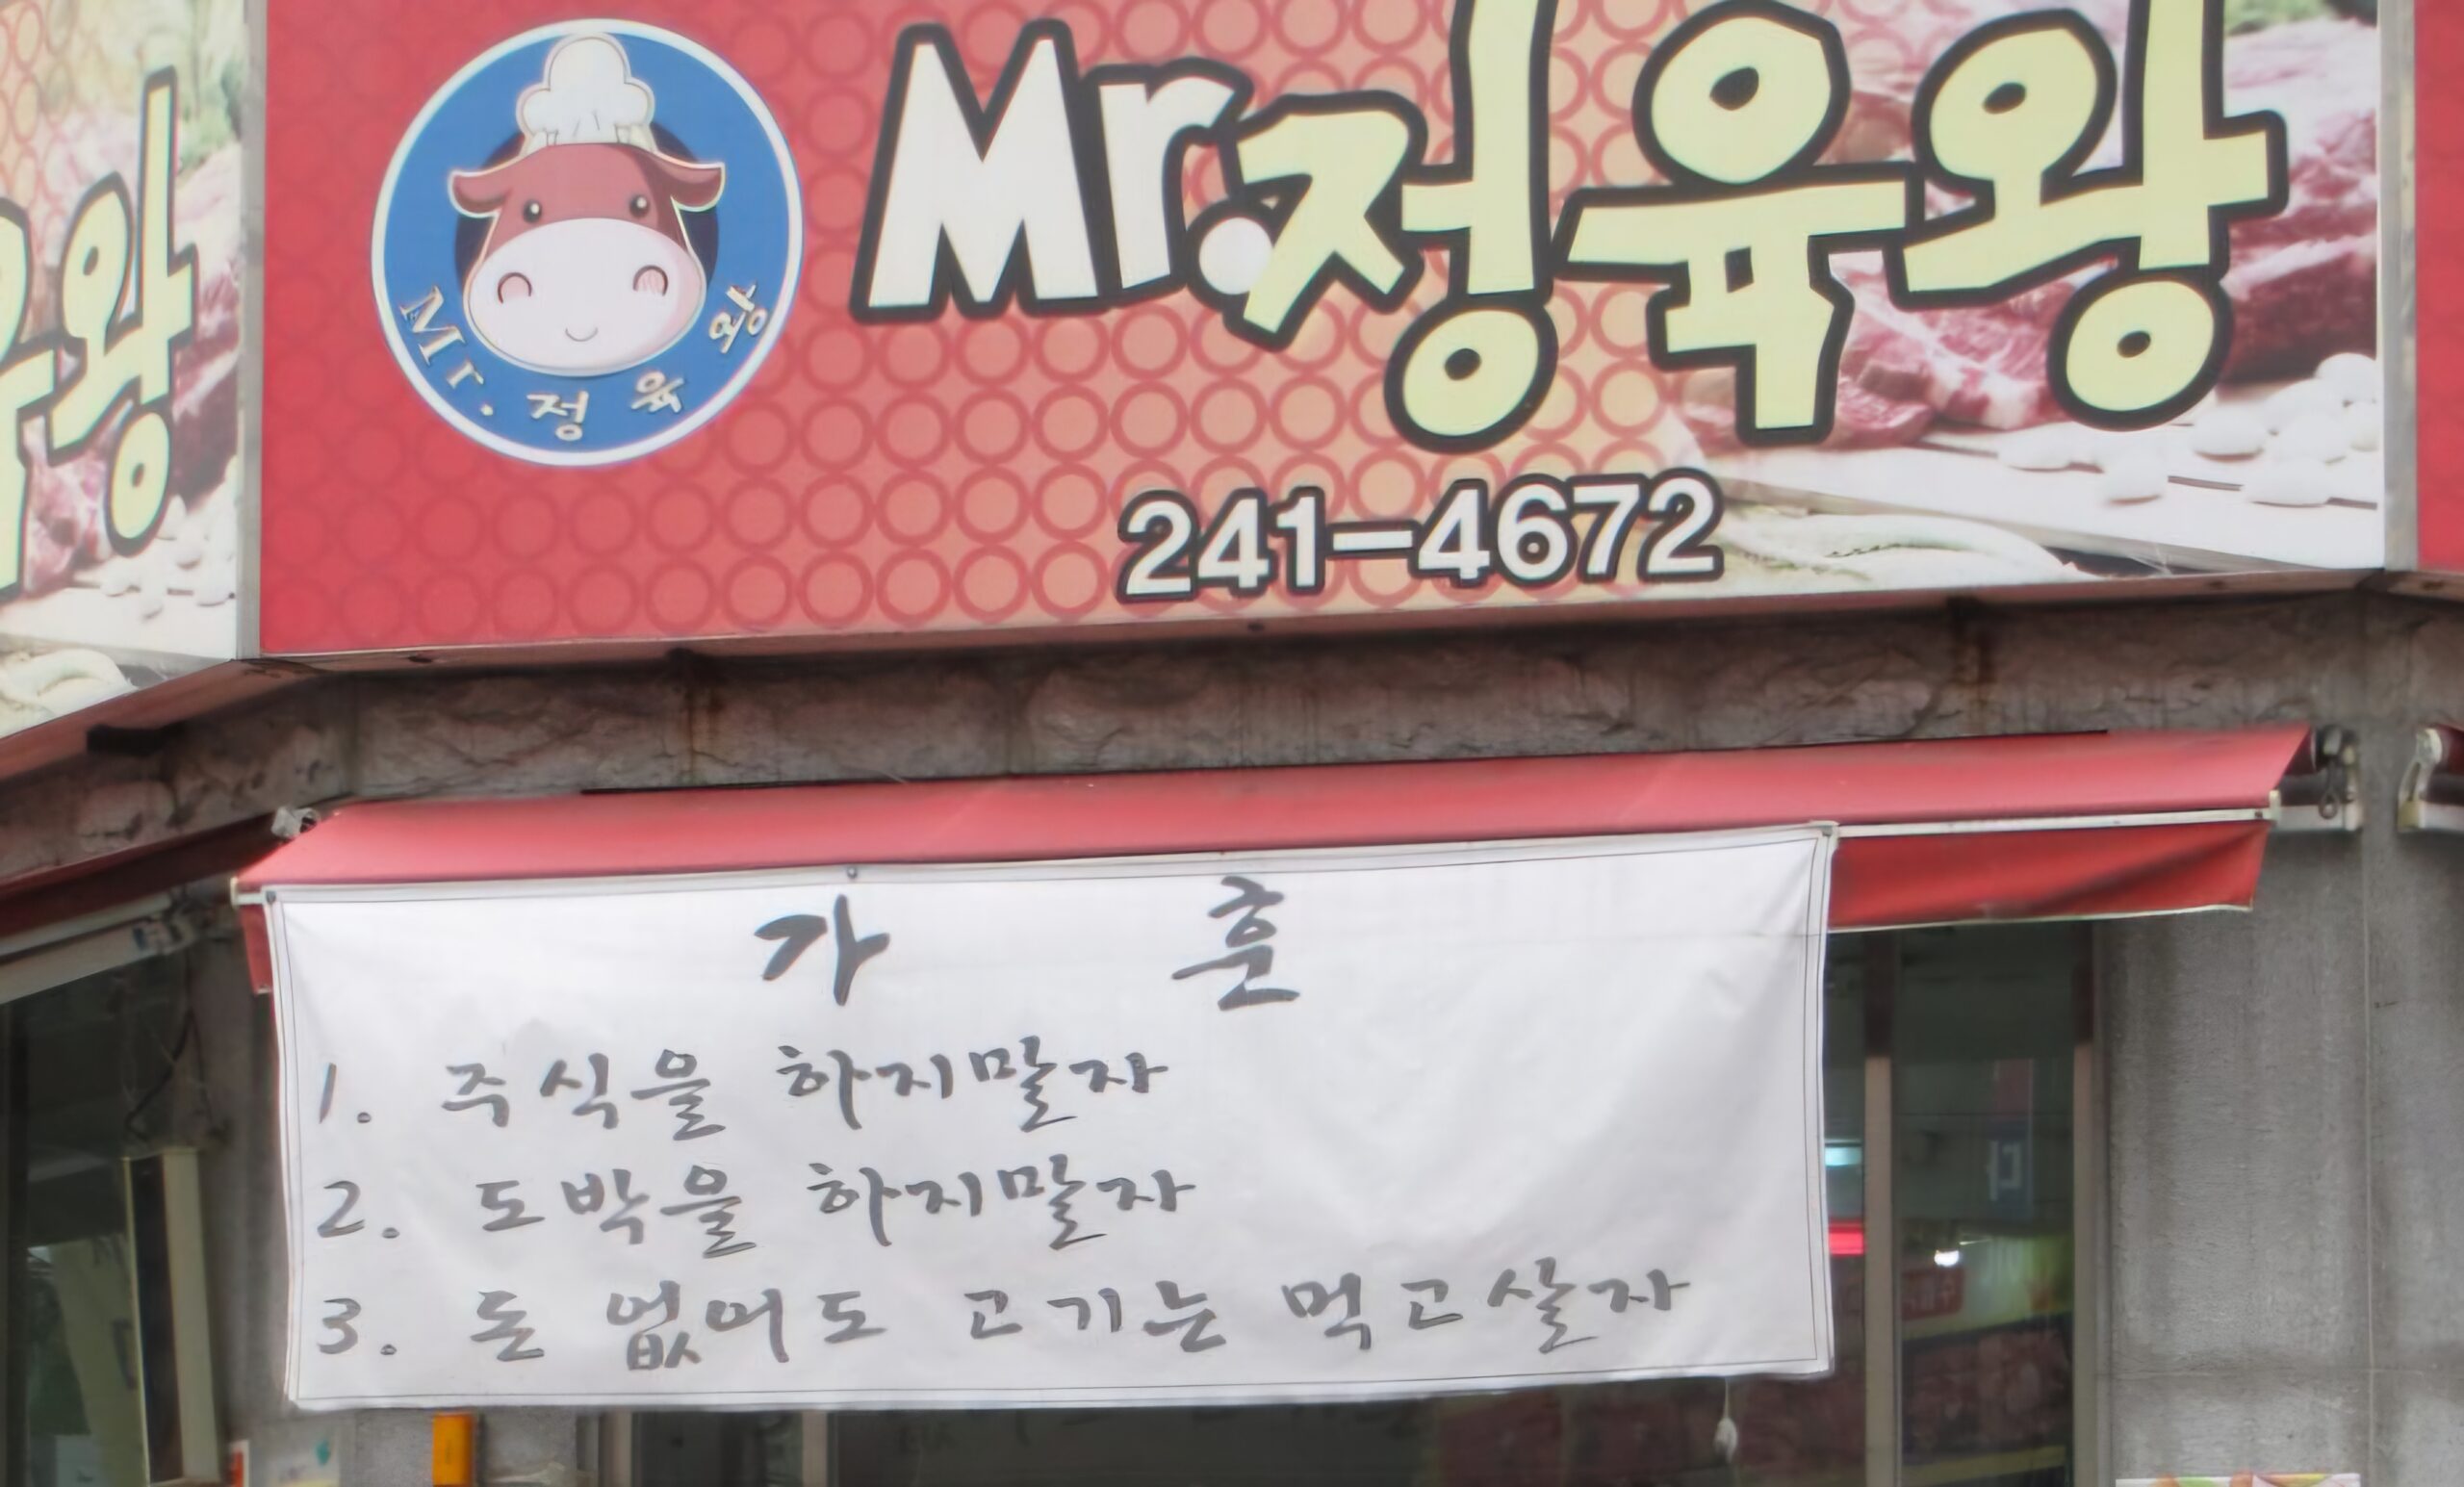 Mr.정육왕
Mr. 정육왕
241-4672
가 훈
1. 주식을 하지말자
2. 도박을 하지말자
3. 돈 없어도 고기는 먹고살자
왕